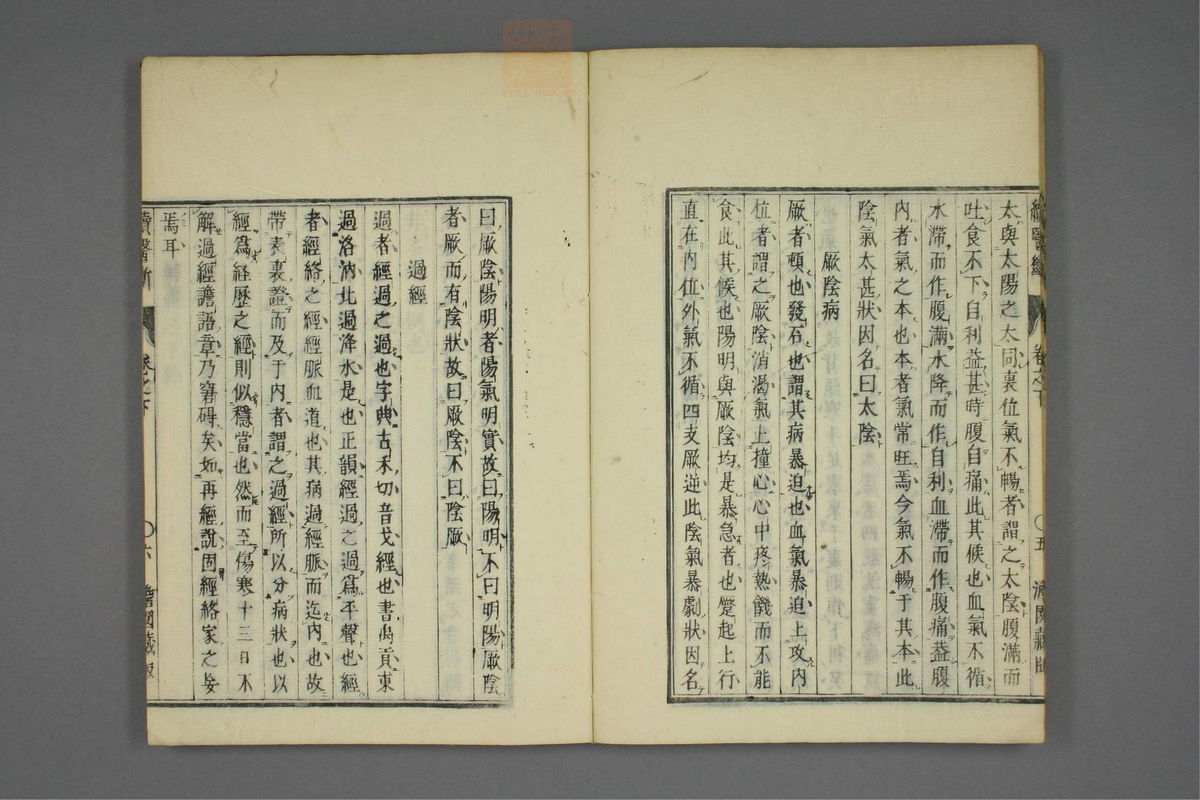 太與太陽之太同裏位氣不暢者謂之太陰腹滿而
吐食不下自利益甚時腹自痛此其候也血氣不循
水滯而作腹滿水降而作自利血滯而作腹痛葢腹
內者氣之本也本者氣常旺焉今氣不暢于其本此
陰氣太甚狀因名曰太陰
厥陰病
厥者頓也發石也謂其病暴迫也血氣暴迫上攻內
位者謂之厥陰消渴氣上撞心心中疼熱饑而不能
食此其候也陽明與厥陰均是暴急者也蹷起上行
直在內位外氣不循四支厥逆此陰氣暴劇狀因名
卷之下
〇五
曰厥陰陽明者陽氣明實故曰陽明不曰明陽厥陰
者厥而有陰狀故曰厥陰不曰陰厥
過經
過者經過之過也字典古禾切音戈經也書禹貢東
過洛汭北過降水是也正韻經過之過爲平聲也經
者經絡之經經脈血道也其病過經脈而迄內也故
帶表裏證而及于內者謂之過經所以分病狀也以
經爲経歷之經則似穩當也然而至傷寒十三日不
解過經譫語章乃窘碍矣如再經說固經絡家之妄
焉耳
續醫斷
卷之下
〇六